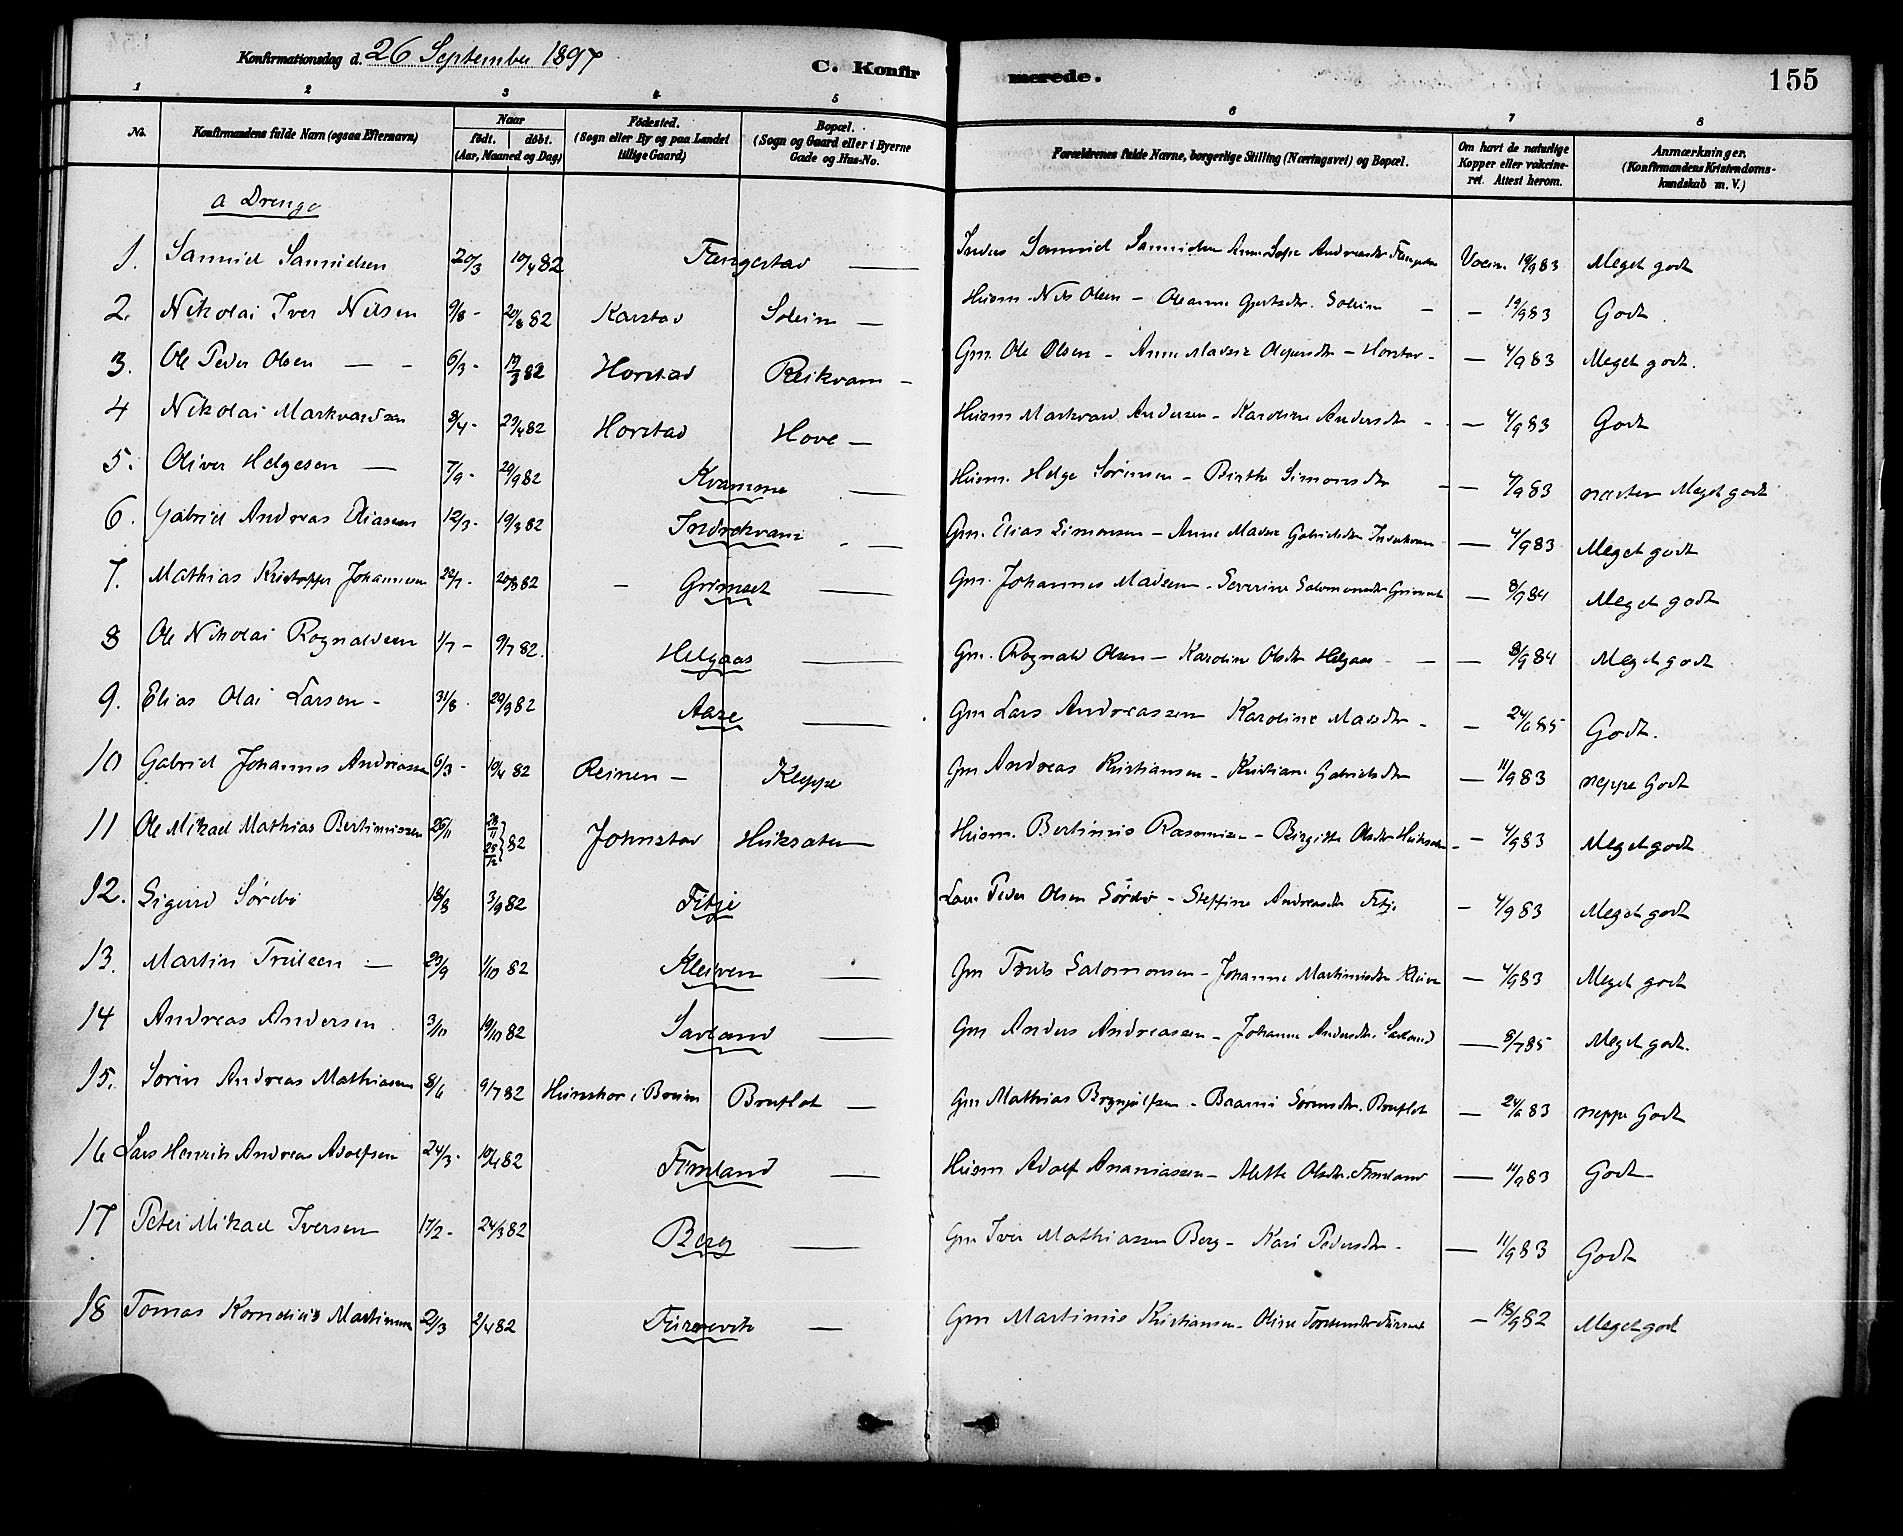 Konfirmationsdag d. 26 September 1897
C. Konfirmerede.
155
1 2 3 4 5 6 7 8
No. Konfirmandens fulde Navn (ogsaa Efternavn) Naar født. døbt. (Aar, Maaned og Dag) Fødested. (Sogn eller By og paa Landet tillige Gaard) Bopæl. (Sogn og Gaard eller i Byerne Gade og Hus-No. Forældrenes fulde Navne, borgerlige Stilling (Næringsvei) og Bopæl. Om havt de naturlige Kopper eller vakcineret. Attest herom. Anmærkninger. (Konfirmandens Kristendomskundskab m. V.)
a Drenge
1. Samuel Samuelsen 20/3 10/4 82 Fængestad — Samuel Samuelsen Anne Andreasdtr. Vacin. 19/9 83 Meget godt
2. Nikolai Iver Nilsen 9/8 - 20/8 82 Karstad Soleim — Husm. Nils Olsen - Oleanne Gjertsdtr. Soleim — 19/9 83 Godt.
3. Ole Peder Olsen — - 6/3 - 19/3 82 Horstad Reikvam — Gm. Ole Olsen - Anne - Horstad - — 4/9 83 Meget godt.
4 Nikolai Markvardsen 8/4 - 29/4 82 Horstad Hove — Husm Markvard Andersen - Karoline Andersdtr - — 4/9 83 Godt
5. Oliver Helgesen — 7/9 - 29/9 82 Kvamme — Husm. Helge Sørensen - Birthe Simonsdtr — 4/9 83 næsten Meget godt
6. Gabriel Andreas Eliassen 12/3 - 19/3 82 Indrekvam — Gm. Elias Simonsen - Anne Gabrielsdtr Indrekvam — 4/9 83 Meget godt
7. Mathias Kristoffer Johannesen 22/7 - 20/8 82 - Grimset — Gm. Johannes Madsen - Severine Salomonsdtr Grimset — 8/9 84 Meget godt
8 Ole Nikolai Rognaldsen 1/7 - 9/7 82. Helgaas — Gm. Rognald Olsen - Karoline Olsdtr Helgaas — 8/9 84 Meget godt
9. Elias Olai Larsen - 31/8 - 29/9 82 Aase — Gm Lars Andreassen Karoline Madsdtr - — 24/6 85 Godt.
10 Gabriel Johannes Andreassen 6/3 - 10/4 82 Reinen — Kleppe Gm Andreas Kristiansen - Kristiane Gabrielsdtr — 11/9 83 neppe Godt
11 Ole Mikael Mathias Bertinussen 26/11 28/11 28/12 82 Johnstad Huksæter — Husm. Bertinus Rasmussen - Birgitte Olsdtr — 4/9 83 Meget godt
12. Sigurd Sørebø 18/8 3/9 82 Fitje Peder Olsen Sørebø - Steffine Andreasdtr Fitje — 4/9 83 Meget godt
13. Martin Trulsen — 23/9 1/10 82 Kleiven — Gm Truls Salomonsen - Johanne Martinusdtr Kleive — 4/9 83 Meget godt
14 Andreas Andersen 3/10 19/10 82 Savland — Gm Anders Andreassen - Johanne Andersdtr. Savland — 8/7 85 Meget godt.
15. Søren Andreas Mathiassen 8/6 9/7 82 i Breim Bruflot — Gm Mathias Brynjulfsen - Sørensdtr. Bruflot — 24/6 83 neppe Godt
16 Lars Henrik Andreas Adolfsen 24/3 - 10/4 82 Fimland — Husm Adolf Ananiassen - Alette Olsdtr. Fimland — 11/9 83 Godt -
17 Peter Mikael Iversen 17/2 - 24/3 82 Berg — Gm Iver Mathiassen Berg - Kari Pedersdtr - — 11/9 83 Godt
18 Tomas Kornelius Martinussen 21/3 2/4 82 — Gm Martinus Kristiansen - Oline — 18/9 82 Meget godt